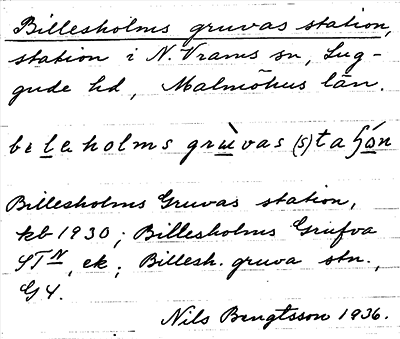 Billesholms gruvas station,
station i N. Vrams sn, Lug-
gude hd, Malmöhus län.
beleholms grùvas (s)taʃón
Billesholms Gruvas station,
kb 1930; Billesholms Grufva
STN, ek; Billesh. gruva stn.,
G4.
Nils Bengtsson 1936.